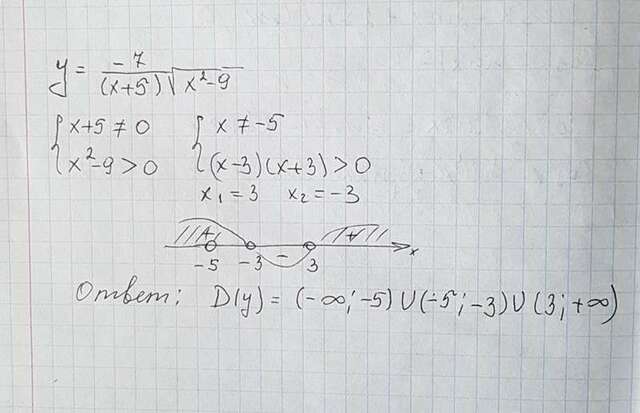 y = -7 / (x+5)√x²-9
{ x+5 ≠ 0 { x ≠ -5
{ x²-9 > 0 { (x-3)(x+3) > 0
x₁ = 3 x₂ = -3
+ - + x
-5 -3 3
Ответ: D(y) = (-∞; -5) ∪ (-5; -3) ∪ (3; +∞)